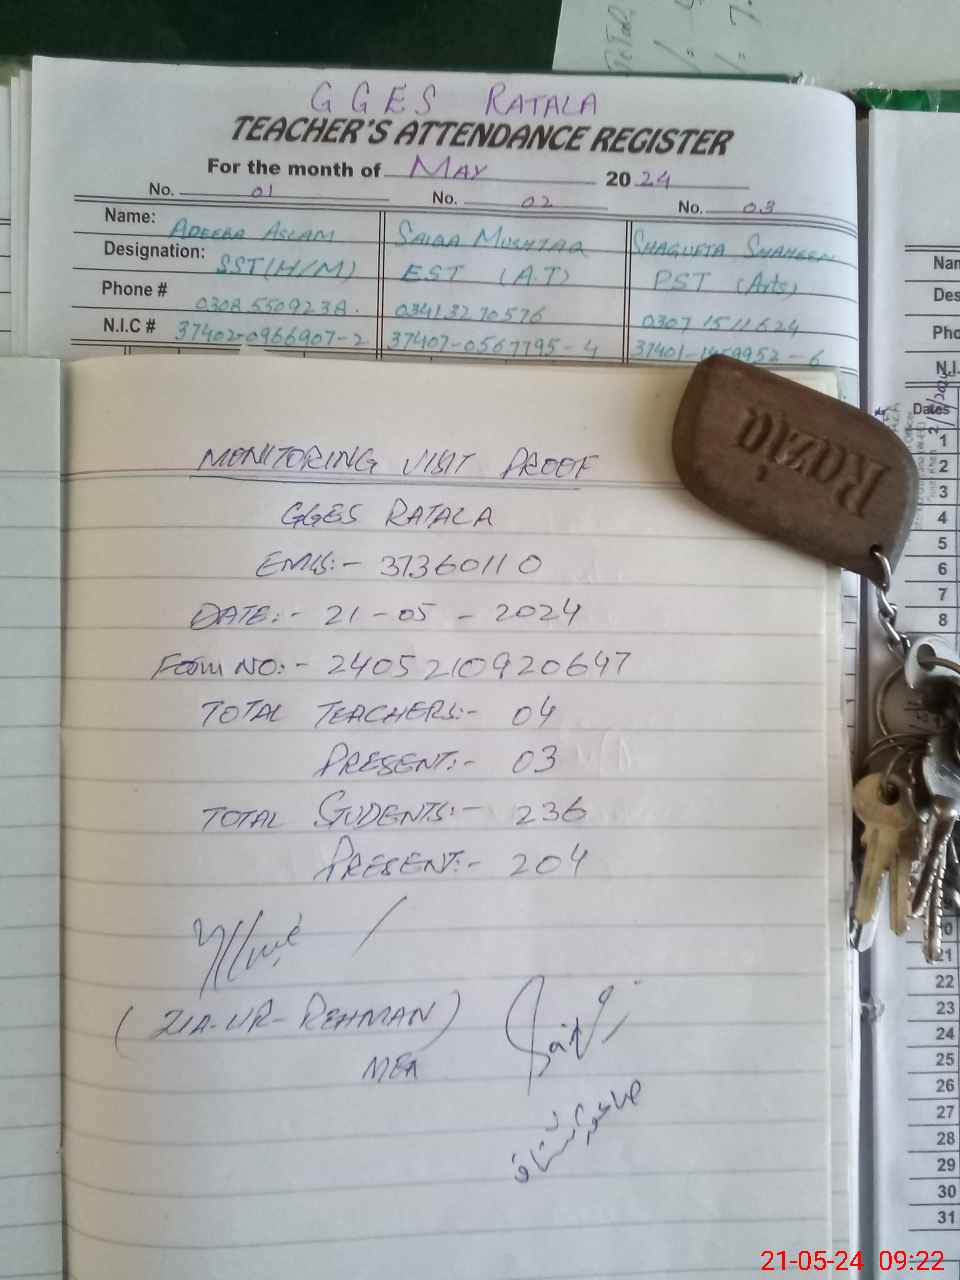 Total
GGES RATALA
TEACHER'S ATTENDANCE REGISTER
For the month of May 2024
No. 01 No. 02 No. 03
Name: ADEEBA ASLAM SAIQA MUSHTAQ SHAGUFTA SHAHEEN
Designation: SST(H/M) EST (A.T) PST (Arts)
Phone # 0308 5509238. 03413270576 0307 1511624
N.I.C # 37402-0966907-2 37407-0567795-4
MONITORING VISIT PROOF
GGES RATALA
EMIS:- 37360110
DATE:- 21-05-2024
Form NO:- 2405210920647
TOTAL TEACHERS:- 04
PRESENT:- 03
TOTAL STUDENTS:- 236
PRESENT:- 204
(ZIA-UR-REHMAN)
MEA
Razia
Nam
Des
Pho
N.I.
Dates
1
2
3
4
5
6
7
8
21
22
23
24
25
26
27
28
29
30
31
21-05-24 09:22